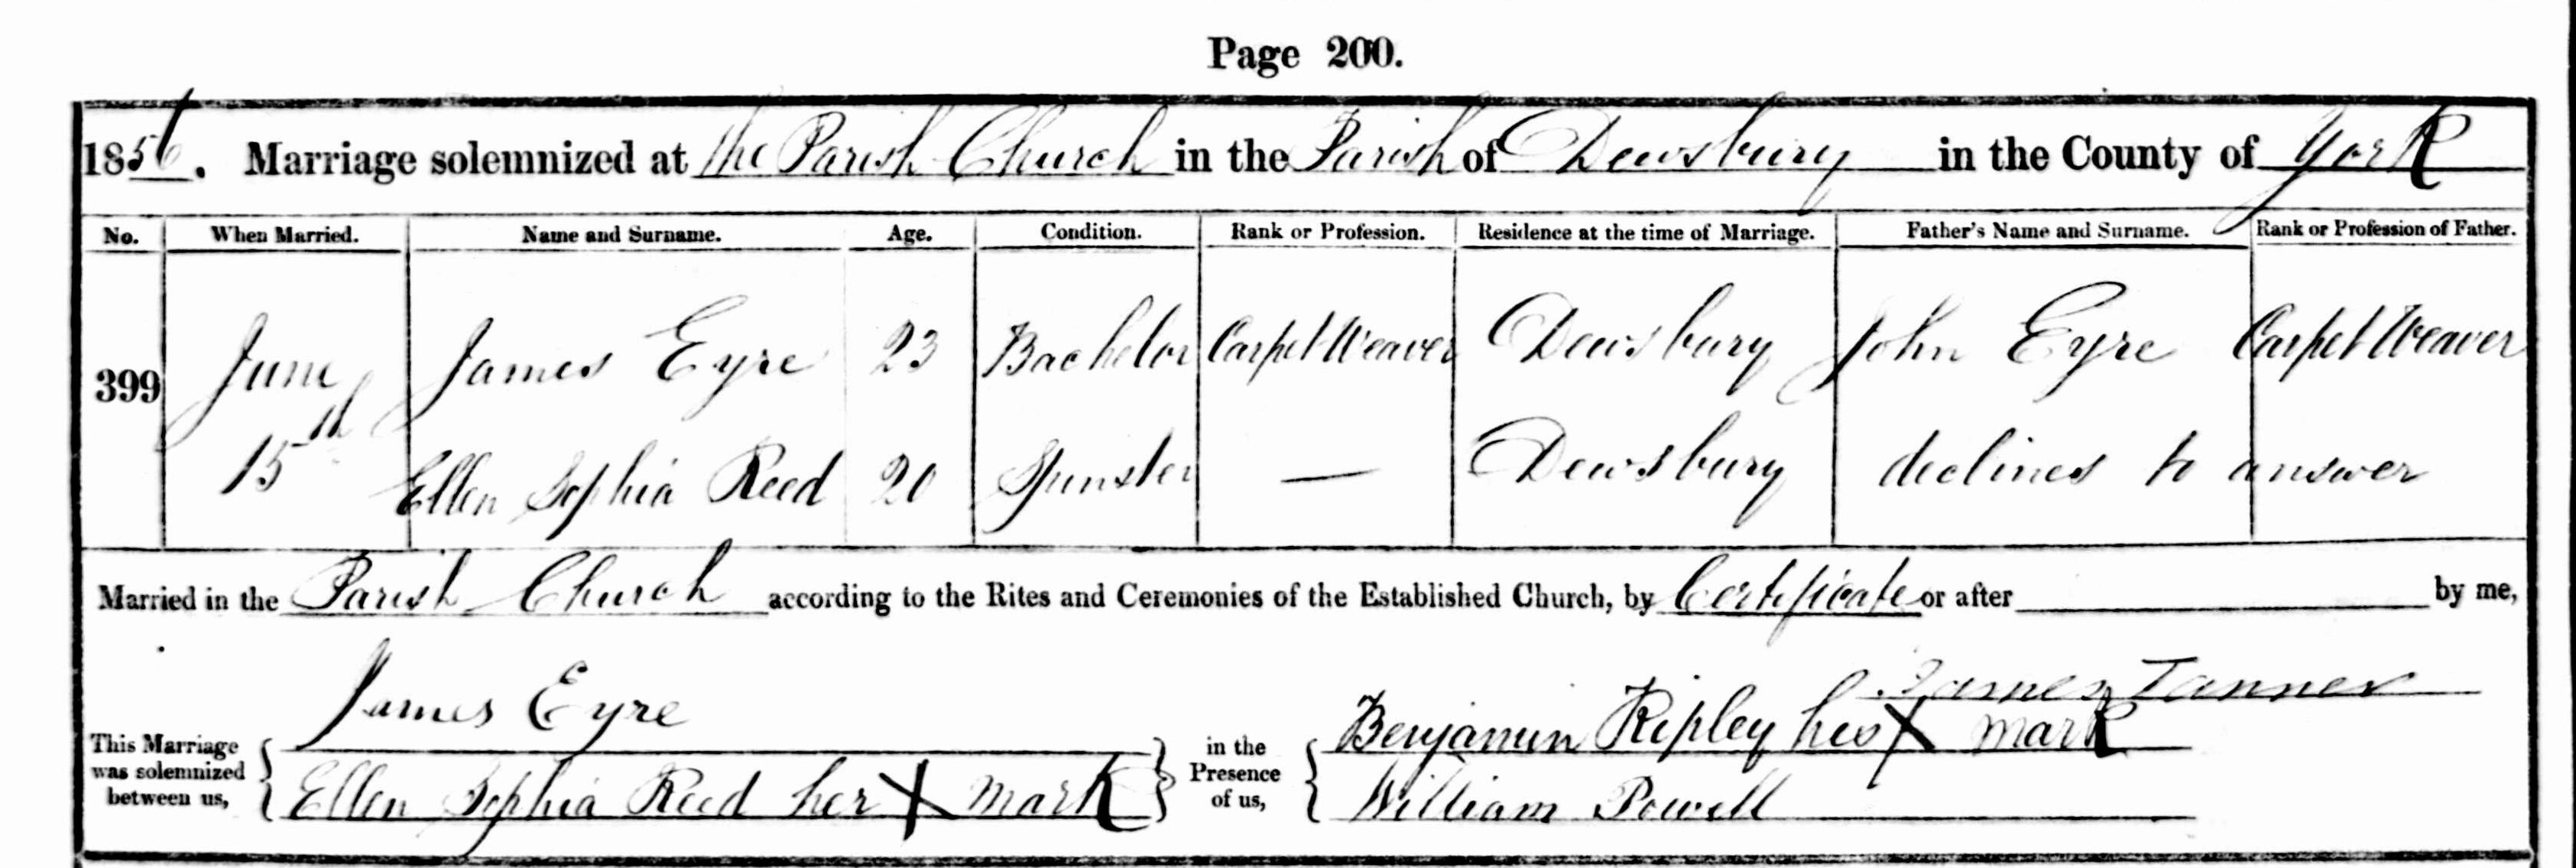 Page 200.
1856. Marriage solemnized at the Parish Church in the Parish of Dewsbury in the County of York
No. When Married. Name and Surname. Age. Condition. Rank or Profession. Residence at the time of Marriage. Father's Name and Surname. Rank or Profession of Father.
399 June 15th James Eyre 23 Bachelor Carpet Weaver Dewsbury John Eyre Carpet Weaver
Ellen Sophia Reed 20 Spinster — Dewsbury declines to answer
Married in the Parish Church according to the Rites and Ceremonies of the Established Church, by Certificate or after by me,
James Tanner
This Marriage was solemnized between us, { James Eyre } in the Presence of us, { Benjamin Ripley his X mark
Ellen Sophia Reed her X mark William Powell